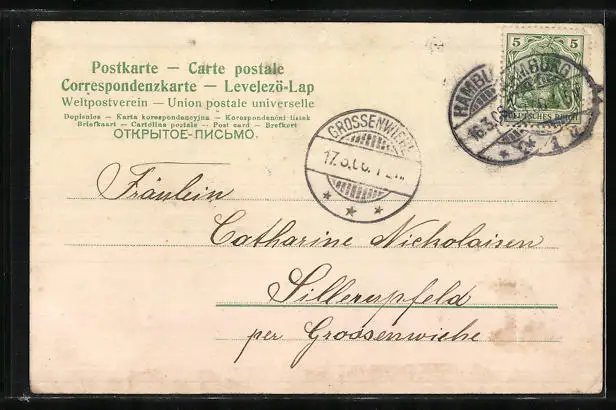 Postkarte — Carte postale
Correspondenzkarte — Levelezö-Lap
Weltpostverein — Union postale universelle
Dopisnice — Karta korespondencyjna — Korespondenční listek
Briefkaart — Cartolina postale — Post card — Brefkort
ОТКРЫТОЕ-ПИСЬМО.
5 5
DEUTSCHES REICH
HAMBURG
16.3.
HAMBURG
GROSSENWIEHE
17.3.06.
Fräulein
Catharine Nickolaisen
Sillerupfeld
per Grossenwiehe